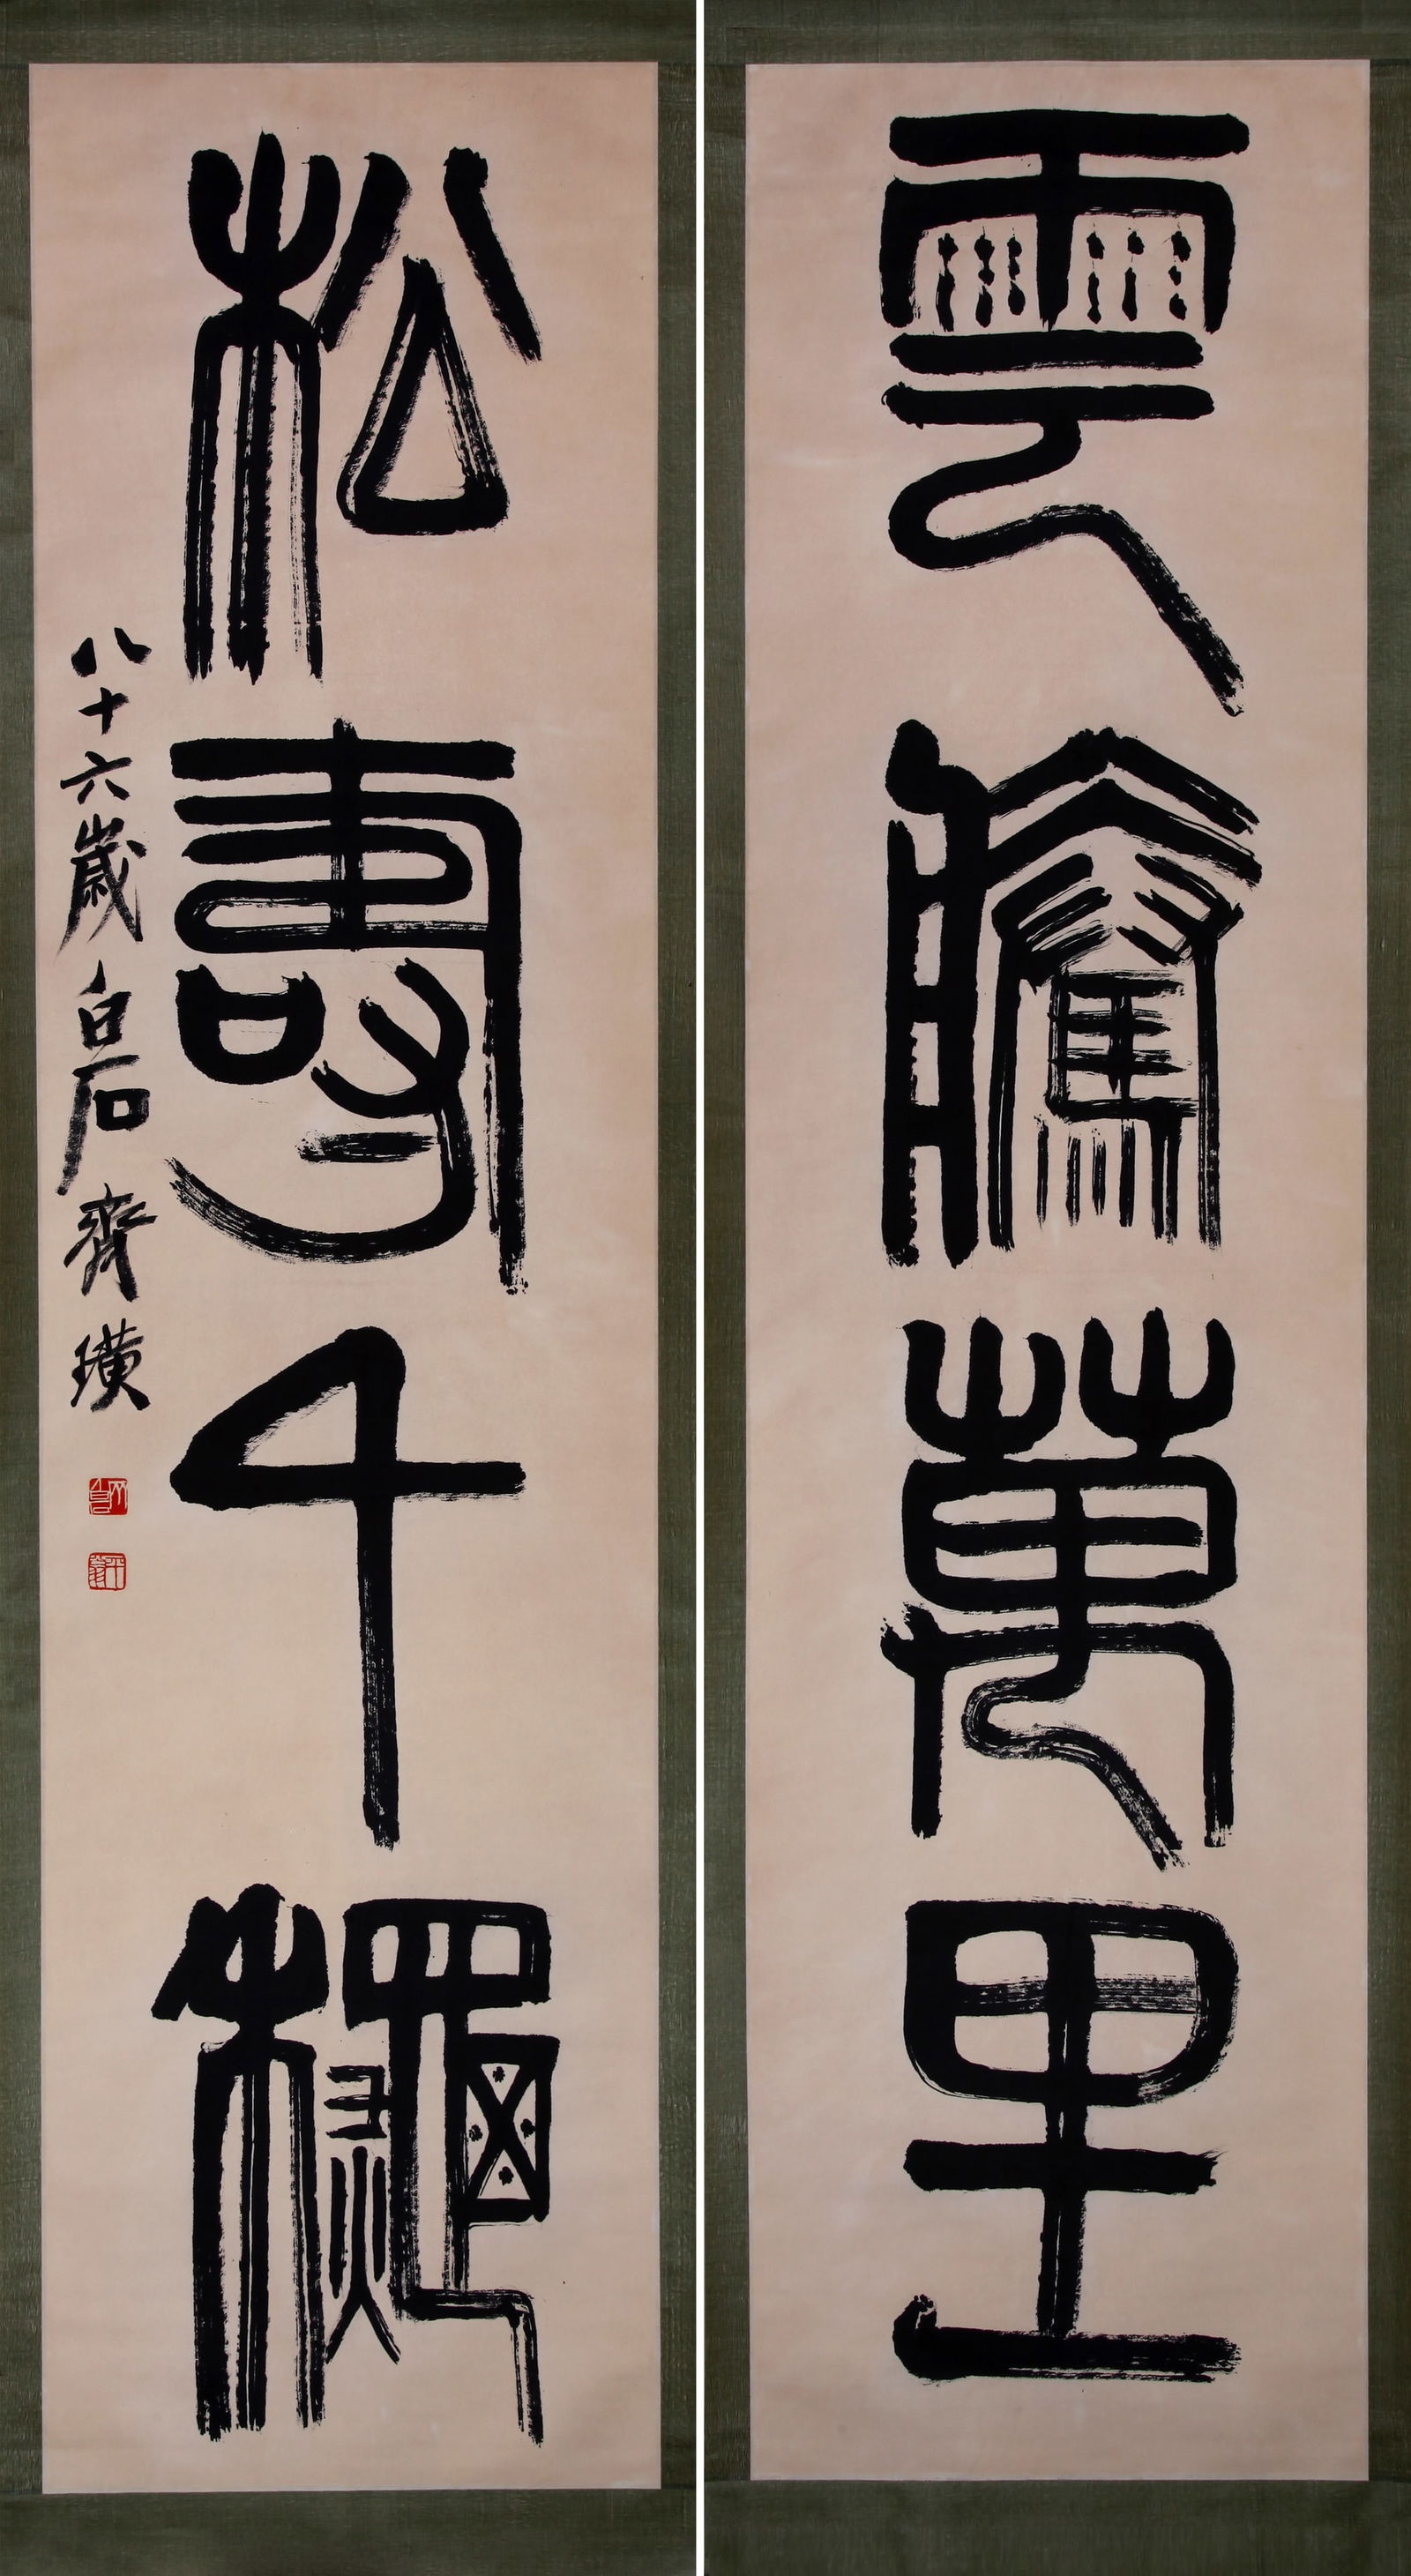 雲騰萬里
松壽千穐
八十六歲白石齊璜